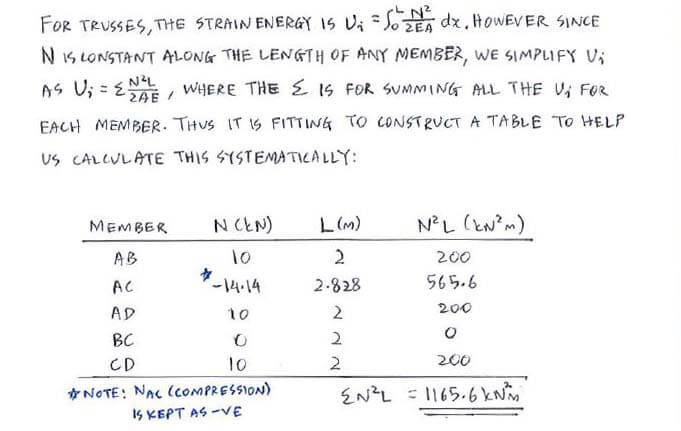 FOR TRUSSES, THE STRAIN ENERGY IS Uᵢ = ∫₀ᴸ N²/2EA dx. HOWEVER SINCE
N IS CONSTANT ALONG THE LENGTH OF ANY MEMBER, WE SIMPLIFY Uᵢ
AS Uᵢ = Σ N²L/2AE, WHERE THE Σ IS FOR SUMMING ALL THE Uᵢ FOR
EACH MEMBER. THUS IT IS FITTING TO CONSTRUCT A TABLE TO HELP
US CALCULATE THIS SYSTEMATICALLY:
MEMBER N (kN) L (m) N²L (kN²m)
AB 10 2 200
AC *-14.14 2.828 565.6
AD 10 2 200
BC 0 2 0
CD 10 2 200
* NOTE: NAC (COMPRESSION) ΣN²L = 1165.6 kN²m
IS KEPT AS -VE